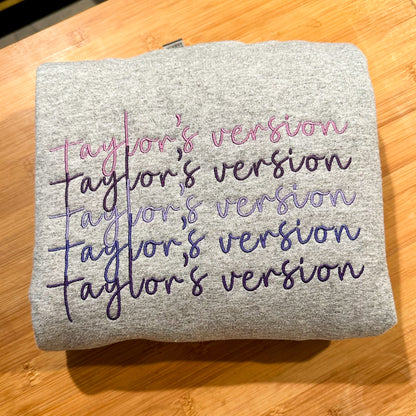 Taylor's version
Taylor's version
Taylor's version
Taylor's version
Taylor's version